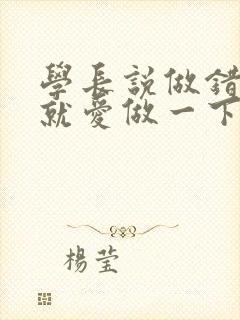 學長說做錯
就愛做一下
楊瑩